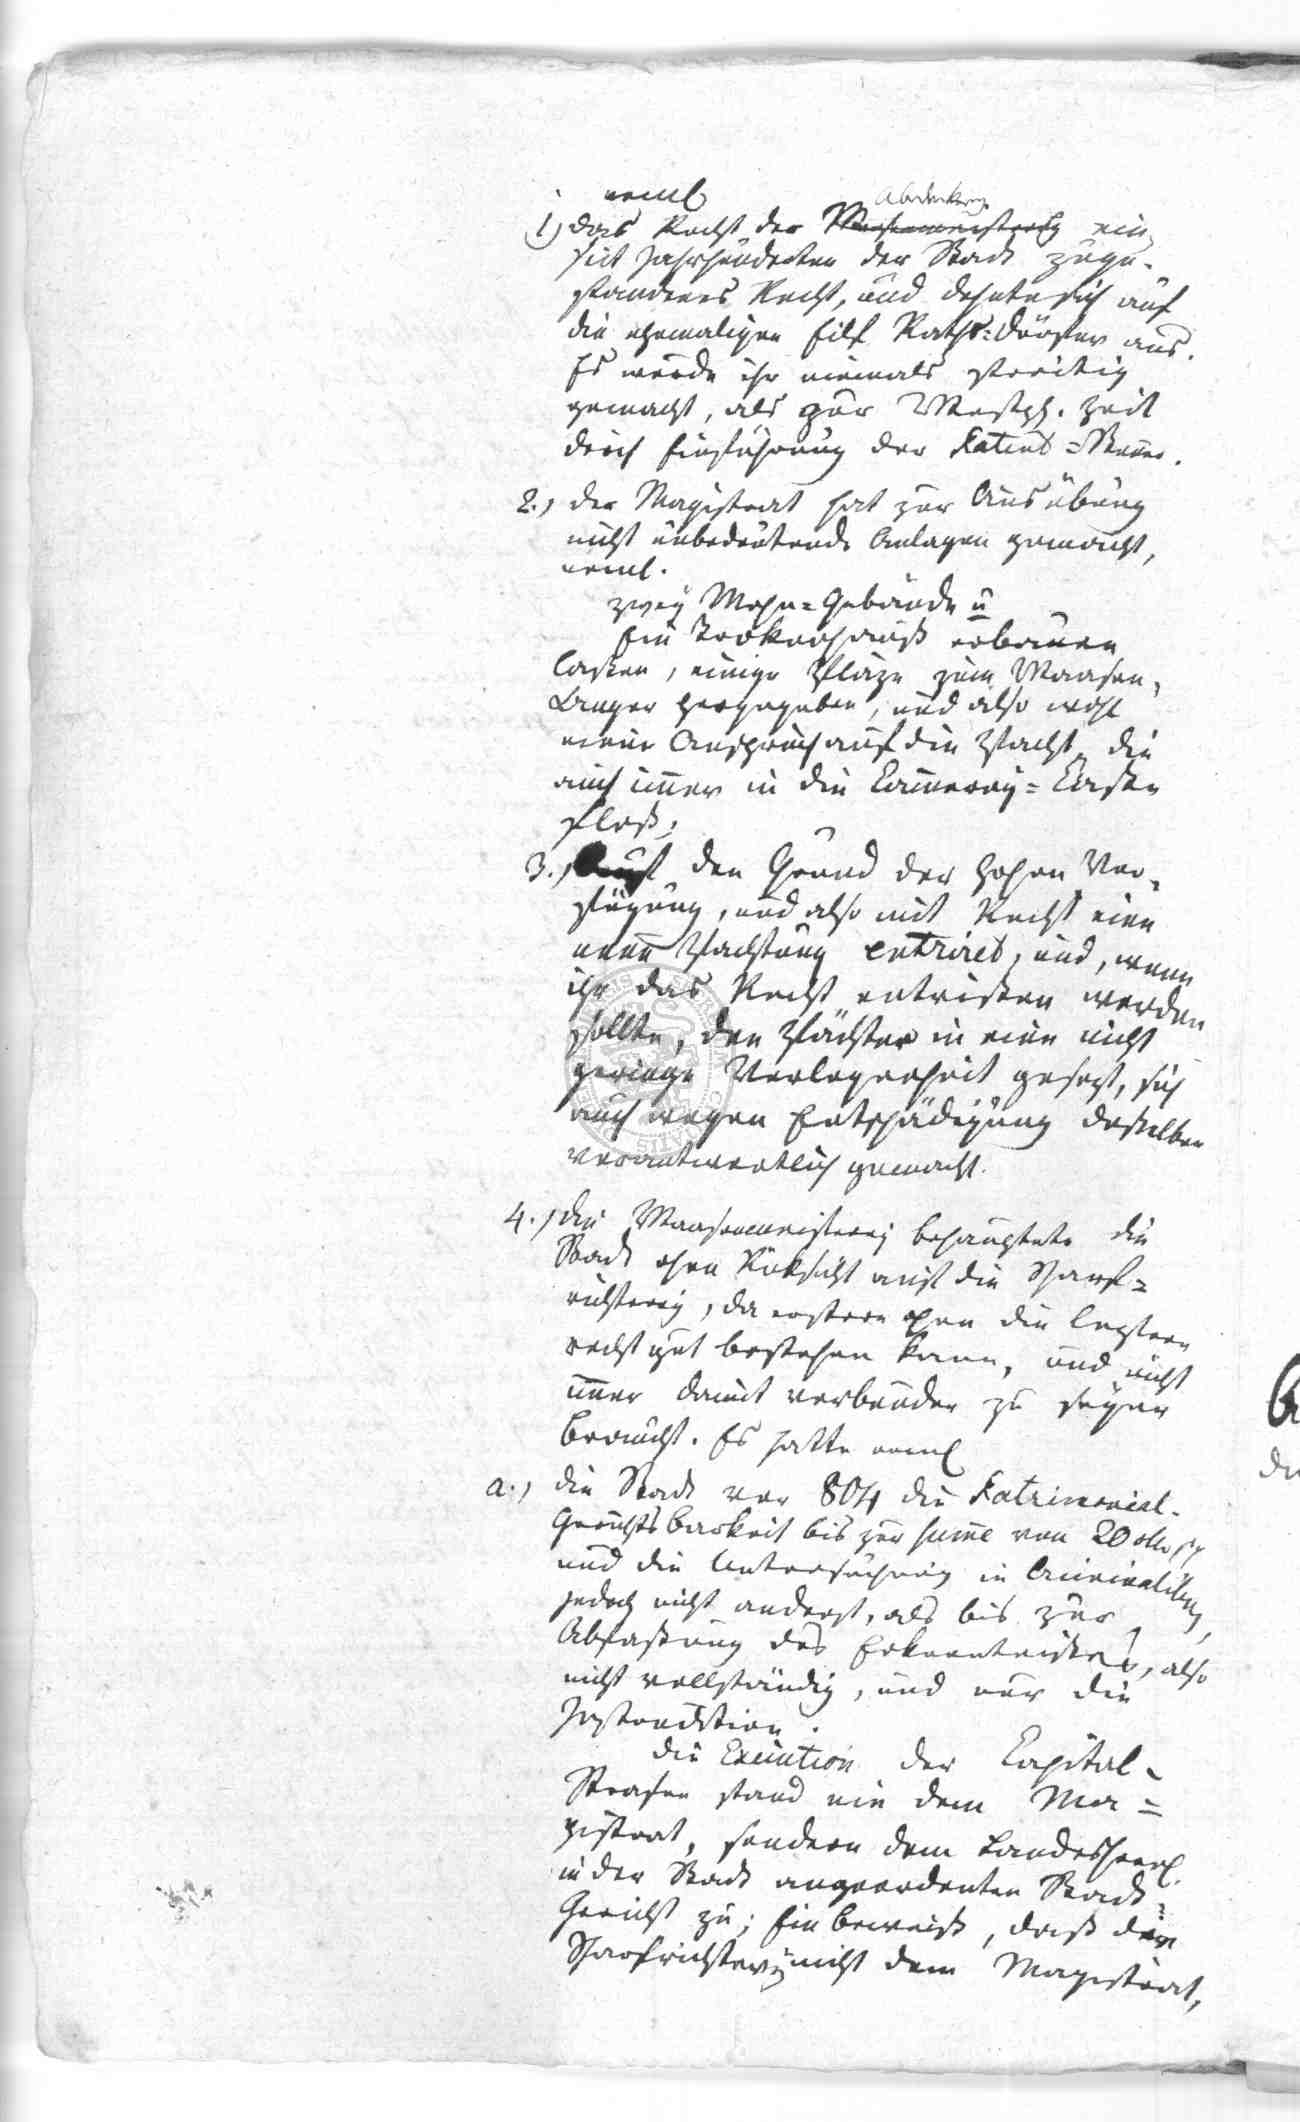 neml
Abdeckerey
1) das Recht der Wasenmeisterey ein
seit Jahrhunderten der Stadt zuge-
standenes Recht, und dehnte sich auf
die ehemaligen Eilf Raths-Dörfer aus.
Es wurde ihr niemals streitig
gemacht, als zur Westph. Zeit
durch Einführung der Patent-Steuer.
2., der Magistrat hat zur Ausübung
nicht unbedeutende Anlagen gemacht,
neml.
zwey Wohn-Gebäude u
Ein Trokenhauß erbauen
laßen, einige Pläze zum Waasen,
Lauger hergegeben, und also wohl
einen Anspruch auf die Pacht, die
auch immer in die Cämmerey-Casse
floß;
3., Auf den Grund der hohen Ver-
fügung, und also mit Recht eine
neue Pachtung entrirt, und, wenn
ihr das Recht entrißen werden
sollte, den Pächter in eine nicht
geringe Verlegenheit gesezt, sich
auch wegen Entschädigung desselben
verantwortlich gemacht.
4., die Waasenmeisterey behauptete die
Stadt ohne Rüksicht auf die Scharf-
richterey, da erstere ohne die leztere
recht gut bestehen kann, und nicht
immer damit verbunden zu seyn
braucht. Es hatte neml
a., die Stadt vor 804 die Patrimonial-
Gerichtsbarkeit bis zur Summe von 20
und die Untersuchung in Criminalibus,
jedoch nicht anderst, als bis zur
Abfaßung des Erkenntnißes, also
nicht vollständig, und nur die
Instruction.
die Execution der Capital-
Strafen stand nie dem Ma-
gistrat, sondern dem Landesherrl.
in der Stadt angeordneten Stadt-
Gericht zu; Ein Beweiß, daß die
Scharfrichterey nicht dem Magistrat,